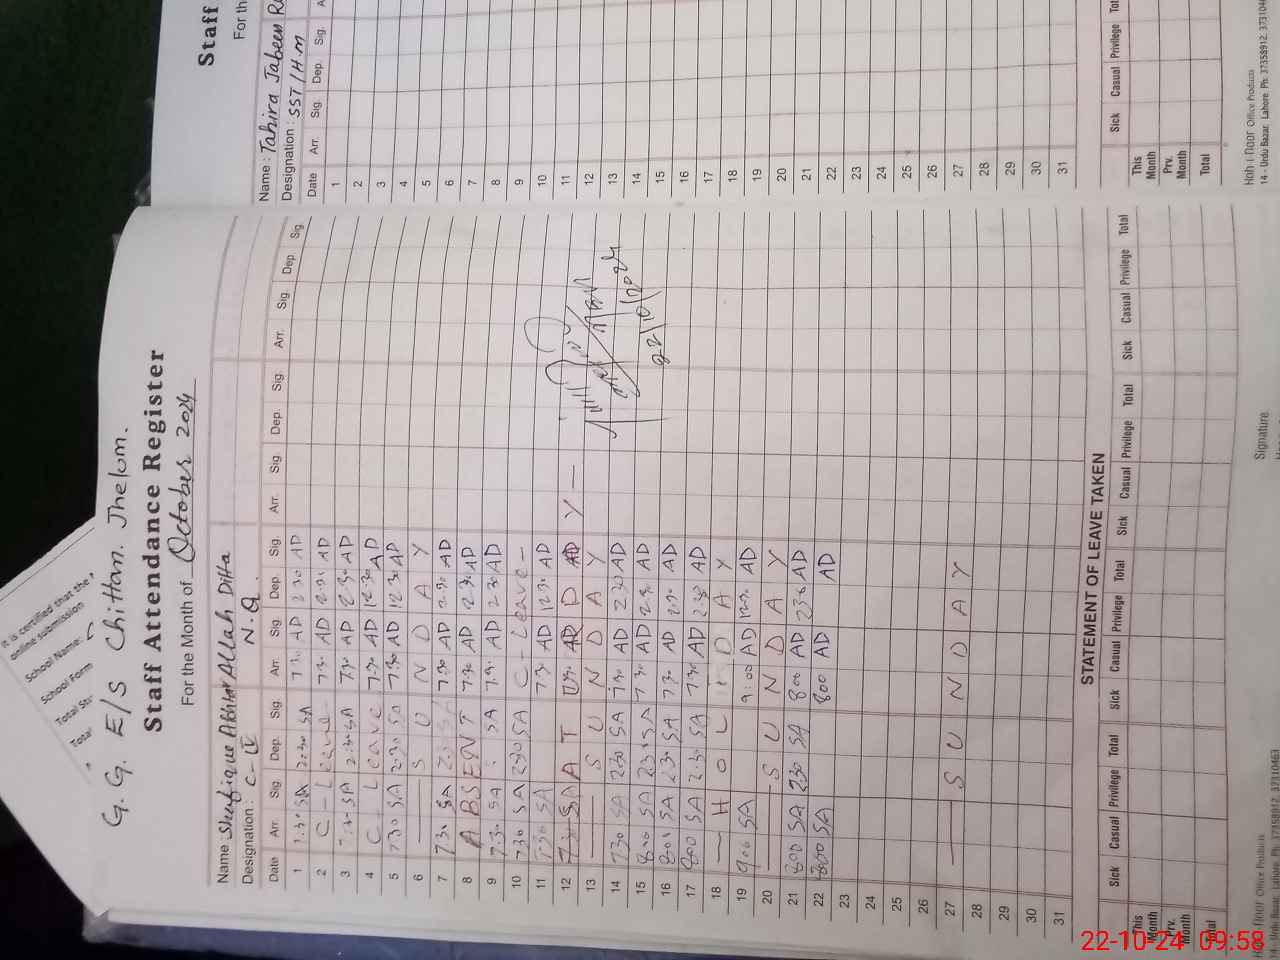 It is certified that the
online submission
School Name:
School Form
Total Stu
Total
G. G. E/S Chittan. Jhelum.
Staff Attendance Register
For the Month of October 2024
Name: Shafique Akhtar Allah Ditta
Designation: C-IV N.Q.
Date Arr. Sig. Dep. Sig. Arr. Sig Dep. Sig. Arr. Sig Dep. Sig. Arr. Sig. Dep Sig.
1 7.30 SA 2.30 SA 7.30 AD 2.30 AD
2 C - Leave 7.30 AD 2.30 AD
3 7.30 SA 2.30 SA 7.30 AD 2.30 AD
4 C Leave 7.30 AD 12.30 AD
5 7.30 SA 2.30 SA 7.30 AD 12.30 AD
6 S U N D A Y
7 7.30 SA 2.30 SA 7.30 AD 2.30 AD
8 ABSENT 7.30 AD 2.30 AD
9 7.30 SA SA 7.30 AD 2.30 AD
10 7.30 SA 2.30 SA C - Leave -
11 7.30 SA 7.30 AD 12.30 AD
12 SAT D Y
13 S U N D A Y
14 7.30 SA 2.30 SA 7.30 AD 2.30 AD
15 8.00 SA 2.30 SA 7.30 AD 2.30 AD
16 8.00 SA 2.30 SA 7.30 AD 2.30 AD
17 8.00 SA 2.30 SA 7.30 AD 2.30 AD
18 H O L I D A Y
19 9.00 SA 9:00 AD 12.30 AD
20 S U N D A Y
21 800 SA 2.30 SA 800 AD 2.30 AD
22 800 SA 800 AD AD
23
24
25
26
27 S U N D A Y
28
29
30
31
22/10/2024
STATEMENT OF LEAVE TAKEN
Sick Casual Privilege Total Sick Casual Privilege Total Sick Casual Privilege Total Sick Casual Privilege Total
This Month
Prv. Month
Total
Signature
Office Products
Lahore. Ph: 37358912, 37310463
Staff
For th
Name: Tahira Jabeen
Designation: SST/H.M
Date Arr. Sig. Dep. Sig.
1
2
3
4
5
6
7
8
9
10
11
12
13
14
15
16
17
18
19
20
21
22
23
24
25
26
27
28
29
30
31
Sick Casual Privilege Tot
This Month
Prv. Month
Total
Koh-i-noor Office Products
14 - Urdu Bazar, Lahore. Ph: 37358912, 373104
22-10-24 09:58